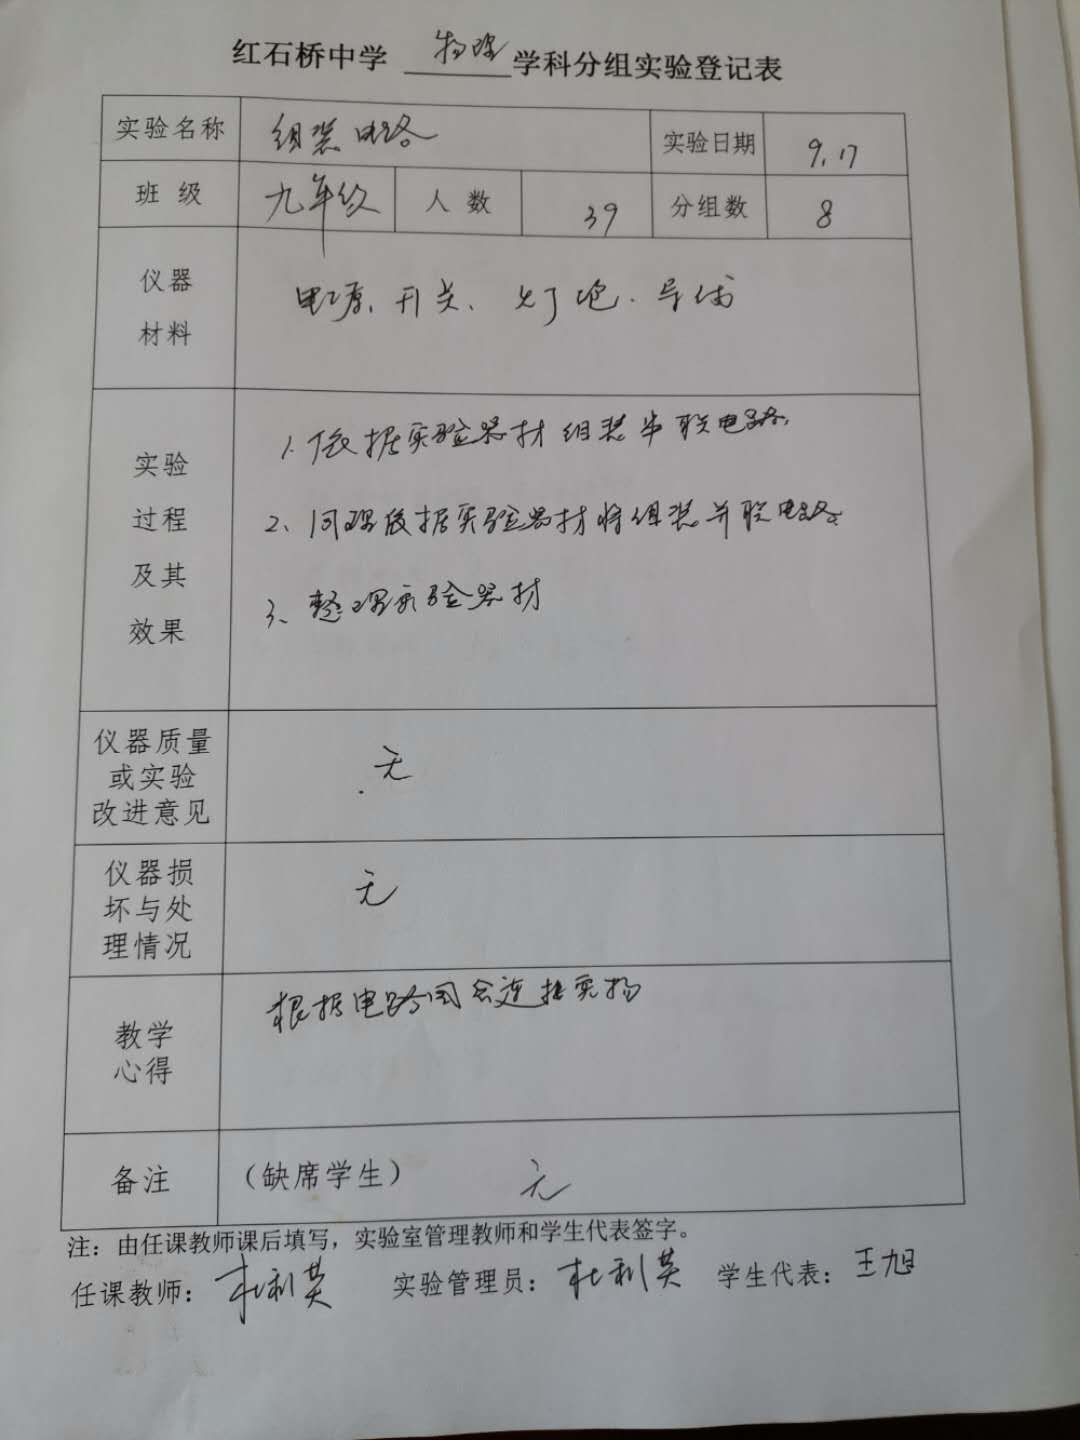 红石桥中学 物理 学科分组实验登记表
实验名称 组装电路 实验日期 9.17
班 级 九年级 人 数 39 分组数 8
仪器
材料
电源、开关、灯泡、导线
实验
过程
及其
效果
1.依据实验器材组装串联电路,
2、同理依据实验器材将组装并联电路
3、整理实验器材
仪器质量
或实验
改进意见
无
仪器损
坏与处
理情况
无
教学
心得
根据电路图会连接实物
备注 (缺席学生) 无
注：由任课教师课后填写，实验室管理教师和学生代表签字。
任课教师：杜利英 实验管理员：杜利英 学生代表：王旭